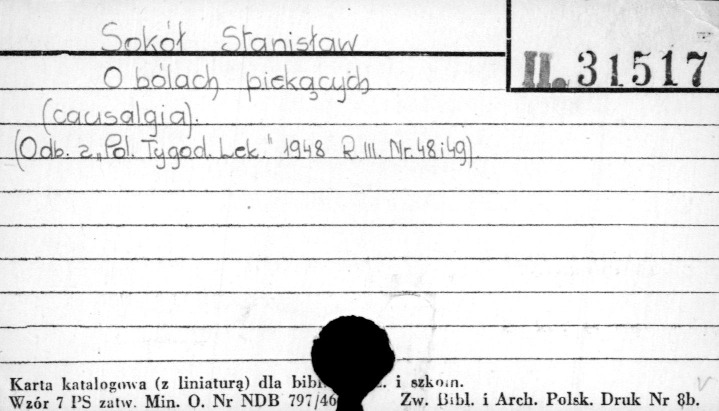 Sokół Stanisław
II. 31517
O bólach piekących
(causalgia).
(Odb. z „Pol. Tygod. Lek." 1948 R. III. Nr. 48 i 49).
Karta katalogowa (z liniaturą) dla i szkoln.
Wzór 7 PS zatw. Min. O. Nr NDB 797/46 Zw. Bibl. i Arch. Polsk. Druk Nr 8b.